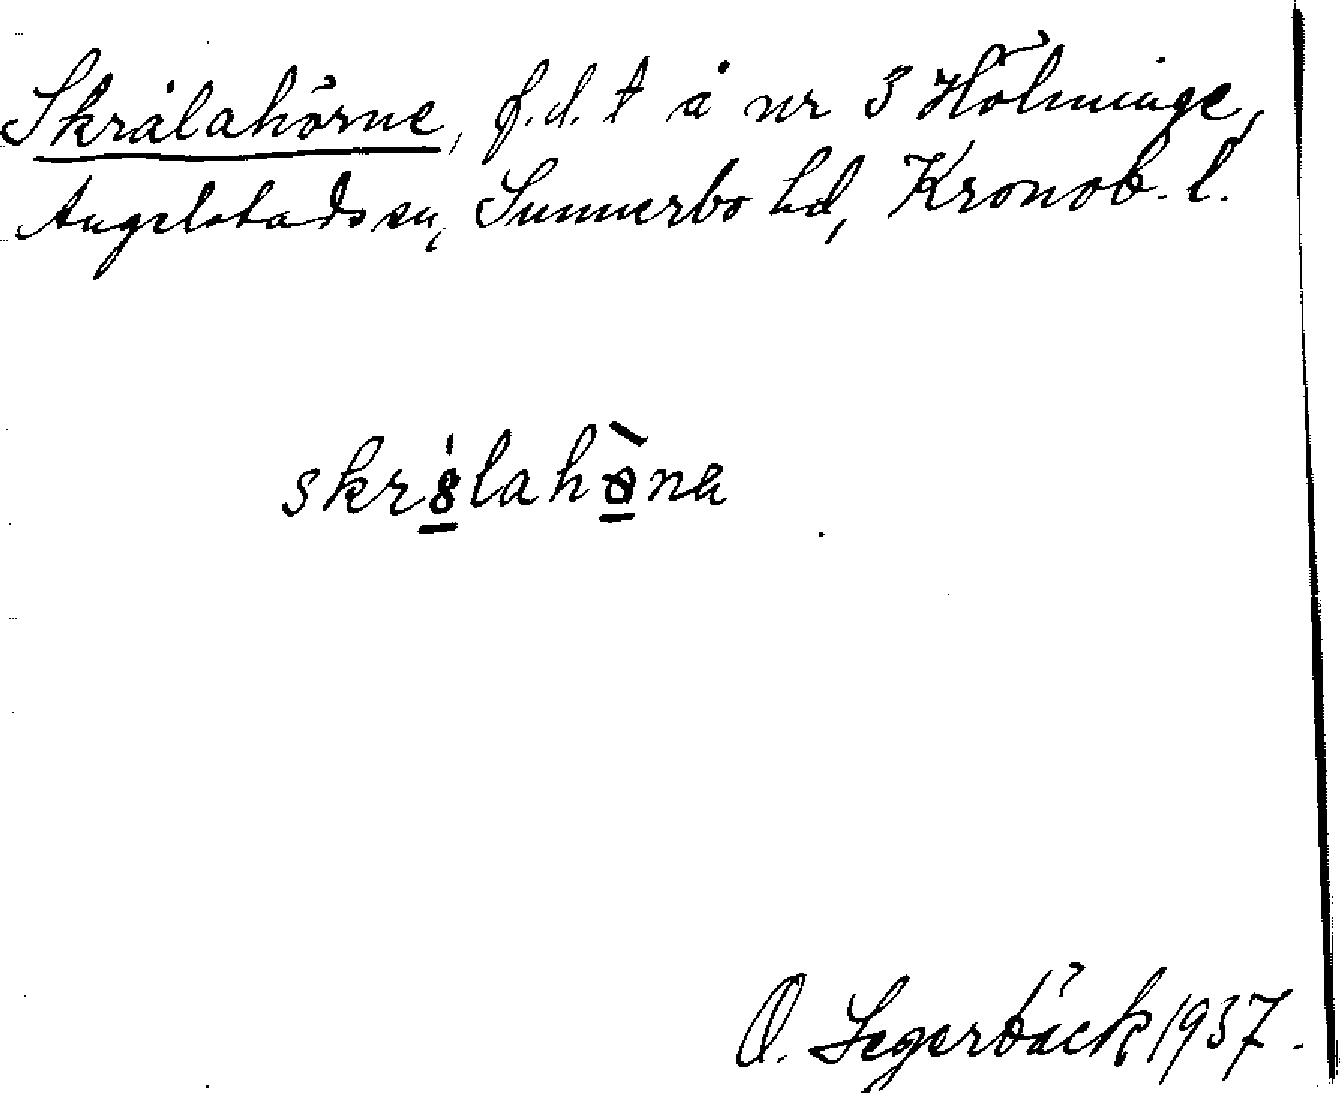 Skrålahörne, f.d. t å nr 3 Hölminge,
Angelstads sn, Sunnerbo hd, Kronob. l.
skr8́lahònɐ
O. Segerbäck 1937.